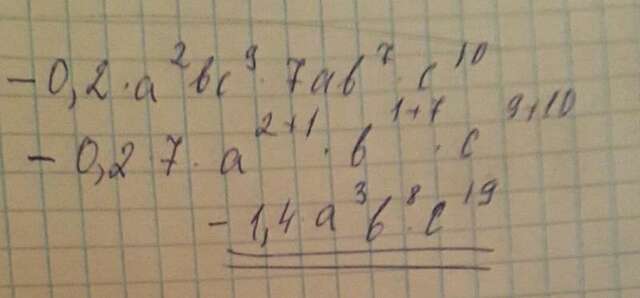 -0,2·a²bc⁹·7ab⁷·c¹⁰
-0,2 7·a²⁺¹·b¹⁺⁷·c⁹⁺¹⁰
-1,4·a³b⁸·c¹⁹